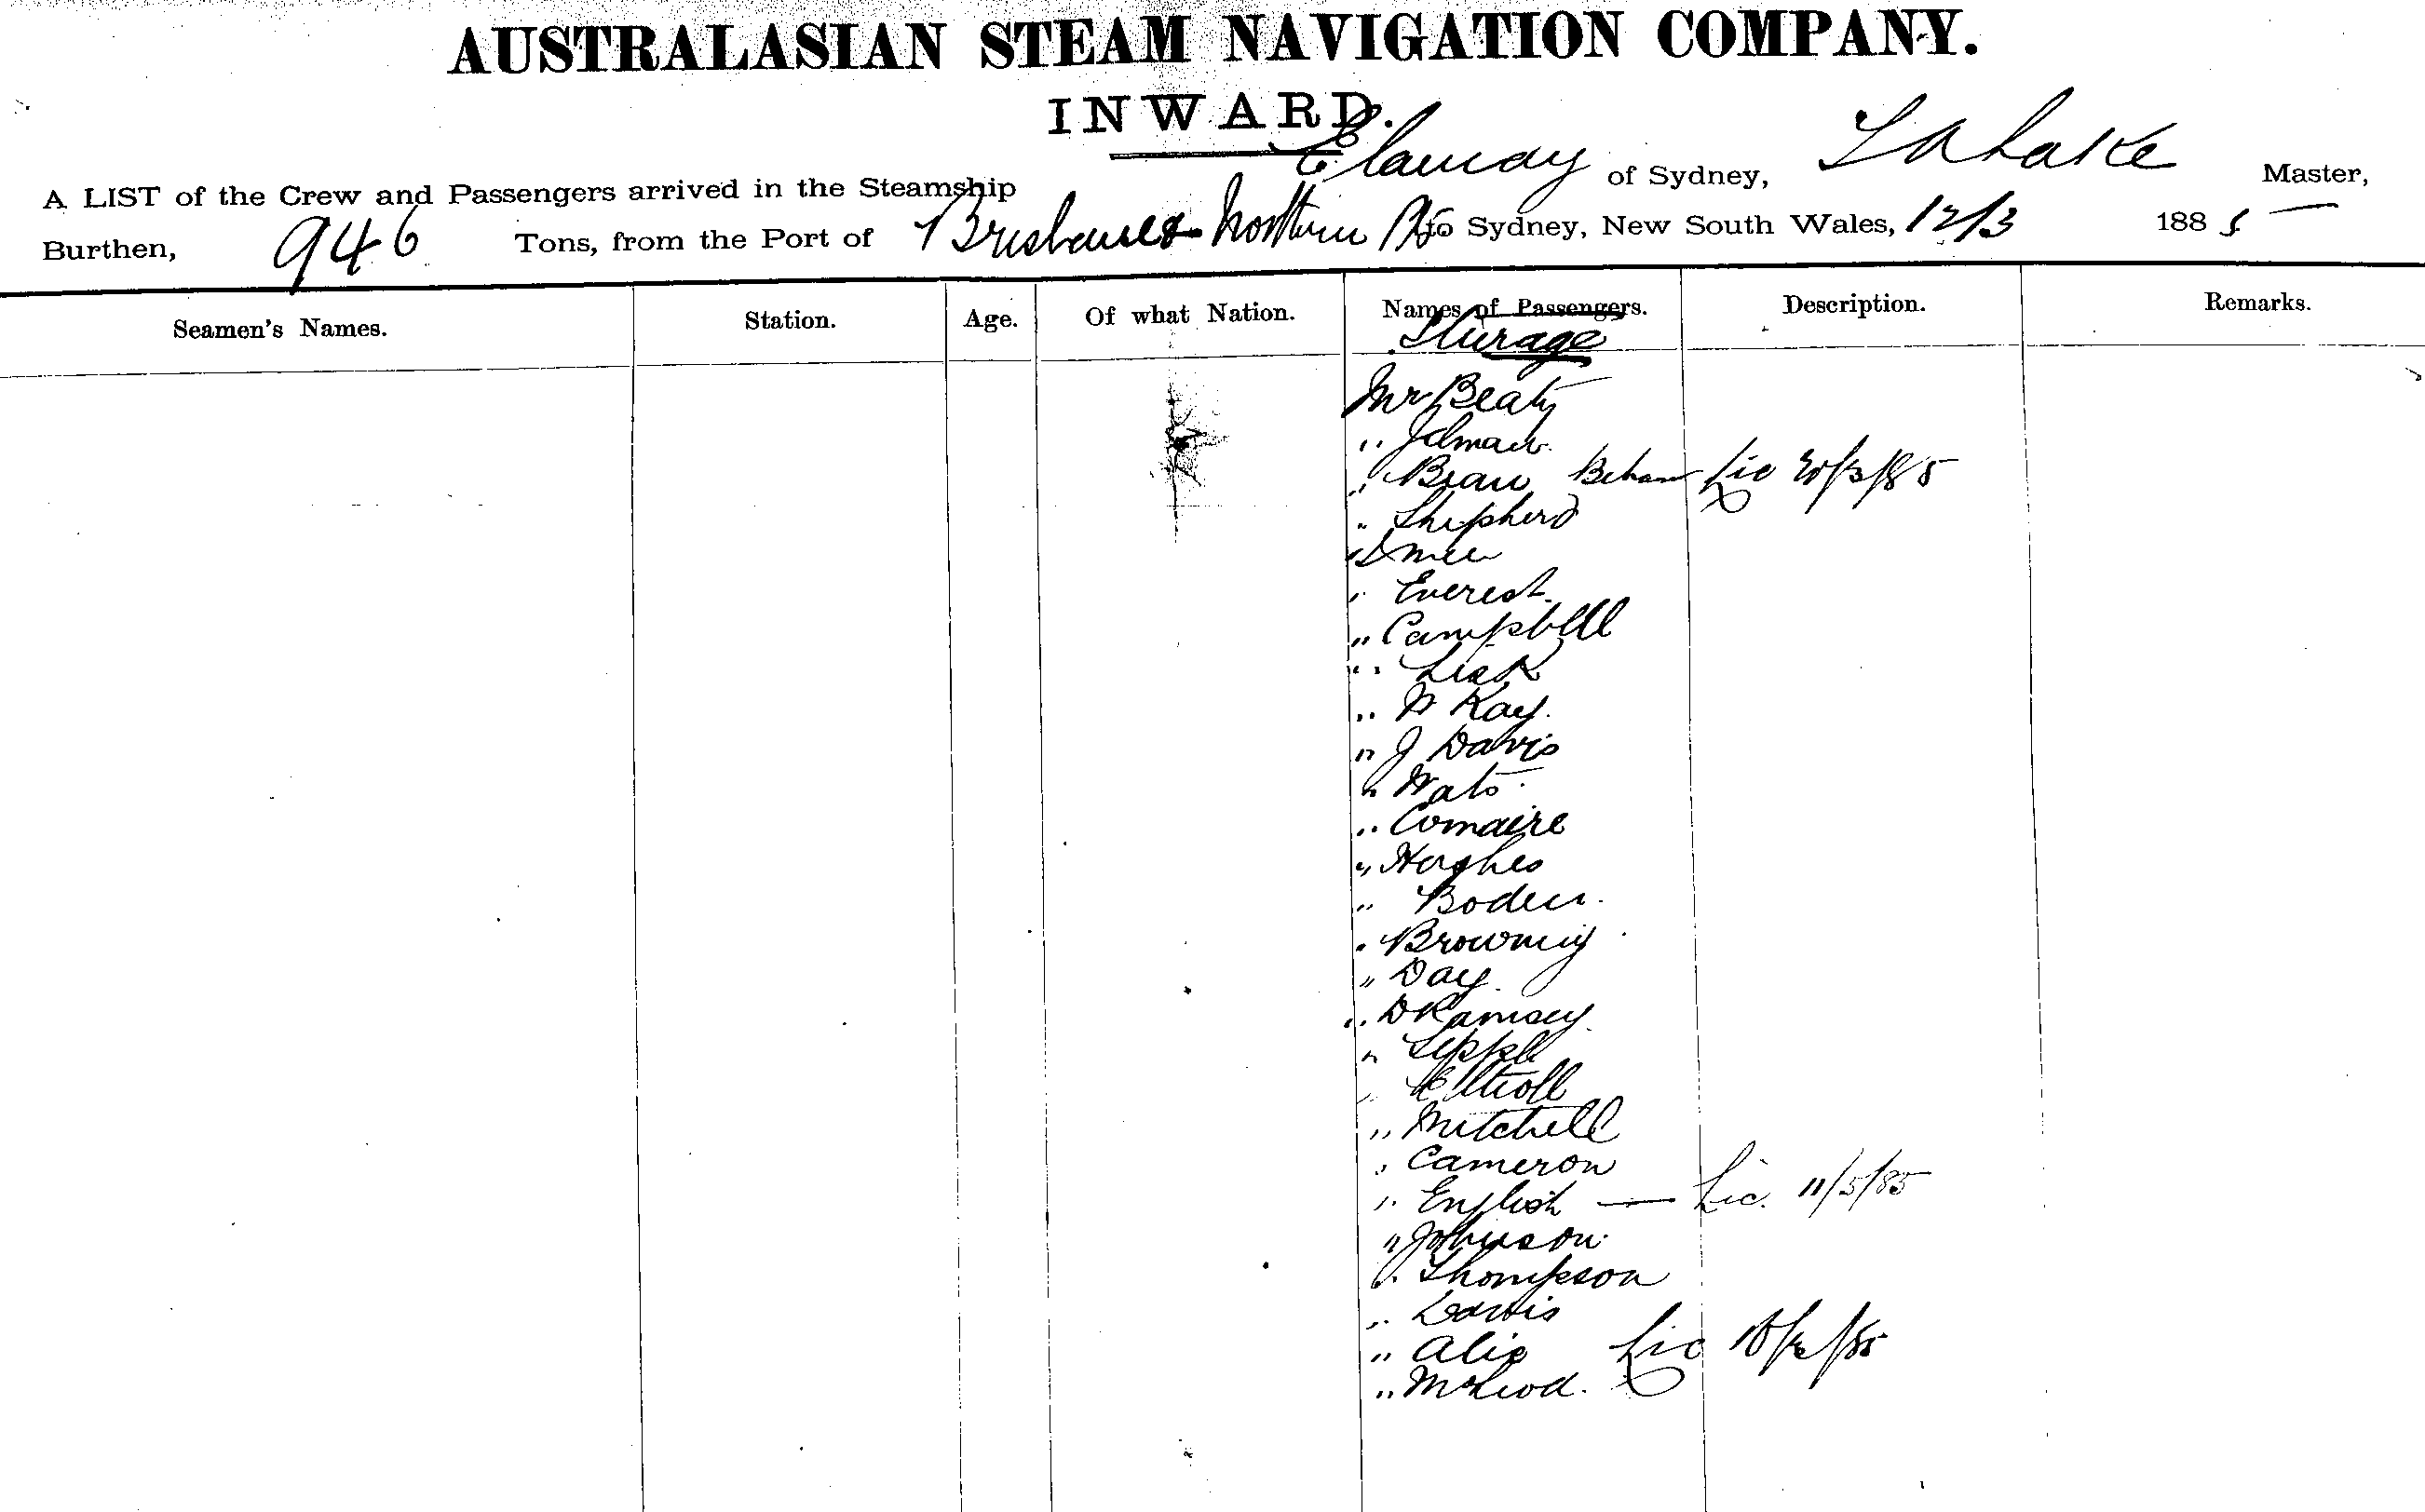 AUSTRALASIAN STEAM NAVIGATION COMPANY.
INWARD.
A LIST of the Crew and Passengers arrived in the Steamship of Sydney, Master,
Burthen, 946 Tons, from the Port of Brisbane & Northern Pts to Sydney, New South Wales, 12/3 1885
Seamen's Names. Station. Age. Of what Nation. Names of Passengers. Description. Remarks.
Mr Beaty
" 
" Lic
" Shepherd
"
" Everest
" Campbell
"
" Kay
" J Davis
"
"
" Hughes
" Boden
" Browning
" Day
" D Ramsey
"
"
" Mitchell
" Cameron
" English — Lic. 11/5/85
" Johnson
" Thompson
" Davis
" Lic
" McLeod